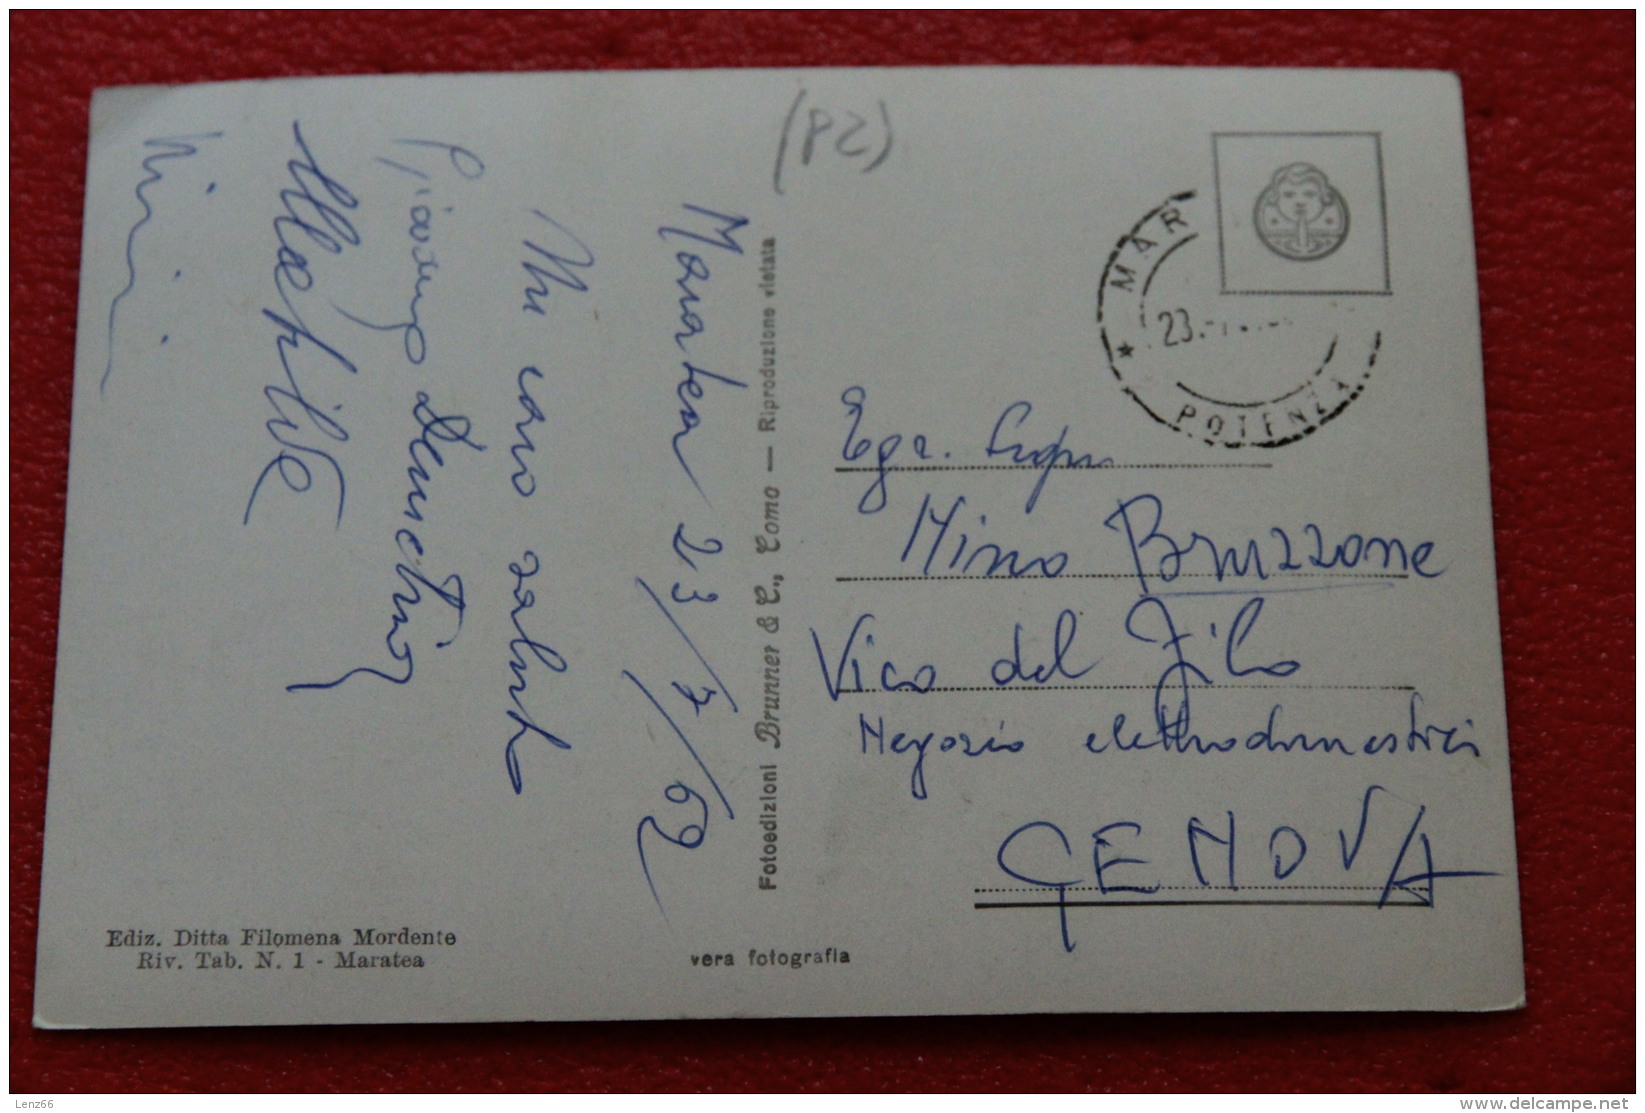 (PZ)
Maratea 23/7/69
Un caro saluto
Demetrio
MAR
23.
POTENZA
Egr. Sign
Mino Bruzzone
Vico del Filo
Negozio elettrodomestici
GENOVA
Fotoedizioni Brunner & C., Como — Riproduzione vietata
Ediz. Ditta Filomena Mordente
Riv. Tab. N. 1 - Maratea
vera fotografia
Lenz66
delcampe.net